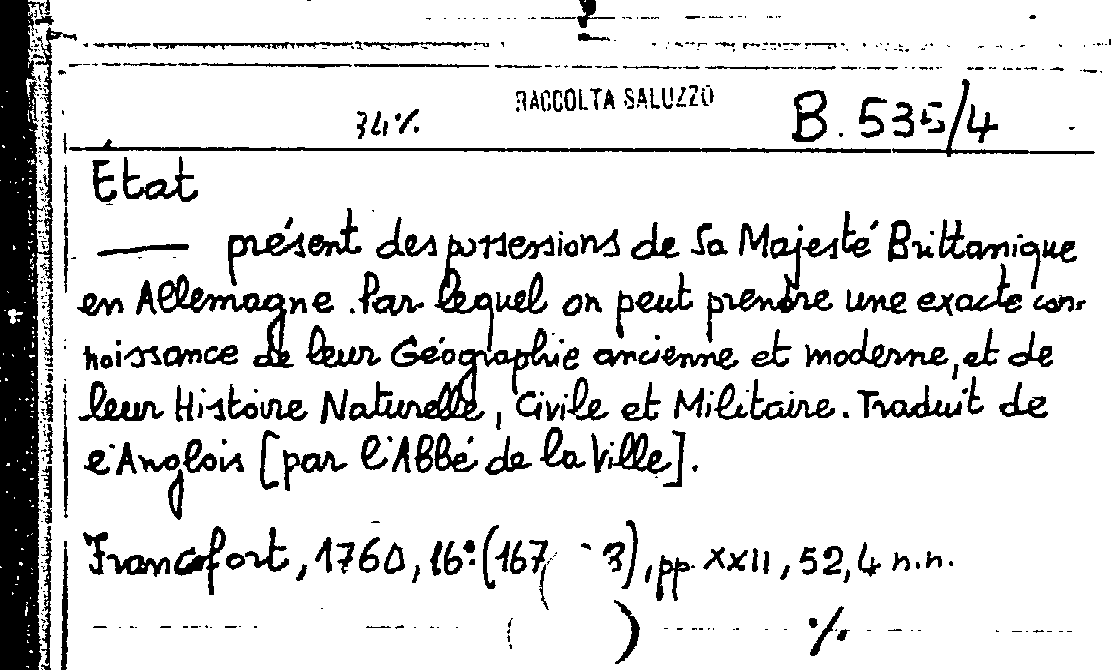 RACCOLTA SALUZZO
34% B. 535/4
État
—— présent des possessions de Sa Majesté Brittanique
en Allemagne. Par lequel on peut prendre une exacte con-
noissance de leur Géographie ancienne et moderne, et de
leur Histoire Naturelle, Civile et Militaire. Traduit de
l'Anglois [par l'Abbé de la Ville].
Francofort, 1760, 16°. (167 3), pp. XXII, 52, 4 n.n.
( ) %